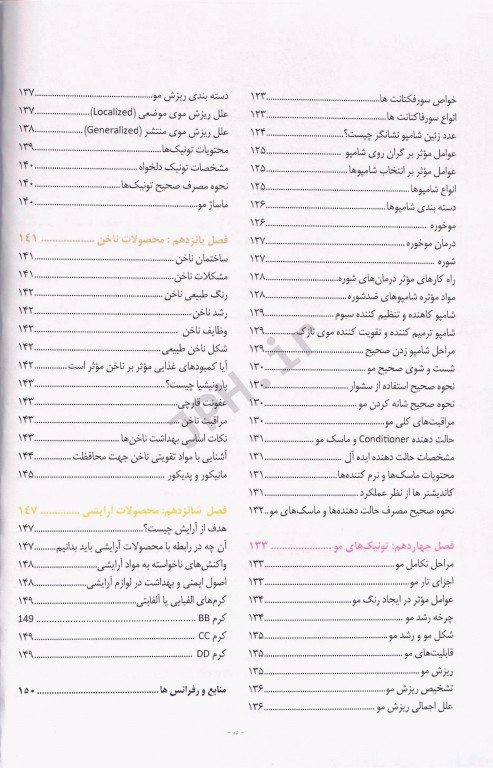 خواص سورفکتانت ها ۱۲۳
انواع سورفاکتانت ها ۱۲۳
عدد زئین شامپو نشانگر چیست؟ ۱۲۴
عوامل مؤثر بر گران روی شامپو ۱۲۵
عوامل مؤثر بر انتخاب شامپوها ۱۲۵
انواع شامپوها ۱۲۵
دسته بندی شامپوها ۱۲۶
موخوره ۱۲۶
درمان موخوره ۱۲۷
شوره ۱۲۷
راه کارهای مؤثر درمان‌های شوره ۱۲۸
مواد مؤثره شامپوهای ضدشوره ۱۲۸
شامپو کاهنده و تنظیم کننده سبوم ۱۲۹
شامپو ترمیم کننده و تقویت کننده موی نازک ۱۲۹
مراحل شامپو زدن صحیح ۱۲۹
شست و شوی صحیح مو ۱۳۰
نحوه صحیح استفاده از سشوار ۱۳۰
نحوه صحیح شانه کردن مو ۱۳۰
مراقبت‌های کلی مو ۱۳۰
حالت دهنده Conditioner و ماسک مو ۱۳۱
مشخصات حالت دهنده ایده آل ۱۳۱
محتویات ماسک‌ها و نرم کننده‌ها ۱۳۱
کاندیشنر ها از نظر عملکرد ۱۳۱
نحوه صحیح مصرف حالت دهنده‌ها و ماسک‌های مو ۱۳۲
فصل چهاردهم: تونیک‌های مو ۱۳۳
مراحل تکامل مو ۱۳۳
اجزای تار مو ۱۳۳
عوامل مؤثر در ایجاد رنگ مو ۱۳۴
چرخه رشد مو ۱۳۴
شکل مو و رشد مو ۱۳۵
قابلیت‌های مو ۱۳۵
ریزش مو ۱۳۵
تشخیص ریزش مو ۱۳۶
علل اجمالی ریزش مو ۱۳۶
دسته بندی ریزش مو ۱۳۷
علل ریزش موی موضعی (Localized) ۱۳۷
علل ریزش موی منتشر (Generalized) ۱۳۸
محتویات تونیک‌ها ۱۳۹
مشخصات تونیک دلخواه ۱۴۰
نحوه مصرف صحیح تونیک‌ها ۱۴۰
ماساژ مو ۱۴۰
فصل پانزدهم: محصولات ناخن ۱۴۱
ساختمان ناخن ۱۴۱
مشکلات ناخن ۱۴۱
رنگ طبیعی ناخن ۱۴۲
رشد ناخن ۱۴۲
وظایف ناخن ۱۴۲
شکل ناخن طبیعی ۱۴۲
آیا کمبودهای غذایی مؤثر بر ناخن مؤثر است ۱۴۲
پارونیشیا چیست؟ ۱۴۳
عفونت قارچی ۱۴۳
مراقبت ناخن ۱۴۳
نکات اساسی بهداشت ناخن‌ها ۱۴۳
آشنایی با مواد تقویتی ناخن جهت محافظت ۱۴۴
مانیکور و پدیکور ۱۴۵
فصل شانزدهم: محصولات آرایشی ۱۴۷
هدف از آرایش چیست؟ ۱۴۷
آن چه در رابطه با محصولات آرایشی باید بدانیم ۱۴۷
واکنش‌های ناخواسته به مواد آرایشی ۱۴۸
اصول ایمنی و بهداشت در لوازم آرایشی ۱۴۸
کرم‌های الفبایی یا آلفابتی ۱۴۹
کرم BB 149
کرم CC ۱۴۹
کرم DD ۱۴۹
منابع و رفرانس ها ۱۵۰
JPH.ir